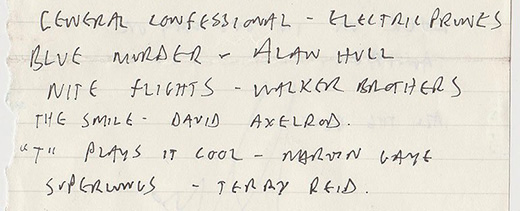 GENERAL CONFESSIONAL - ELECTRIC PRUNES
BLUE MURDER - ALAN HULL
NITE FLIGHTS - WALKER BROTHERS
THE SMILE - DAVID AXELROD.
"T" PLAYS IT COOL - MARVIN GAYE
SUPERLUNGS - TERRY REID.